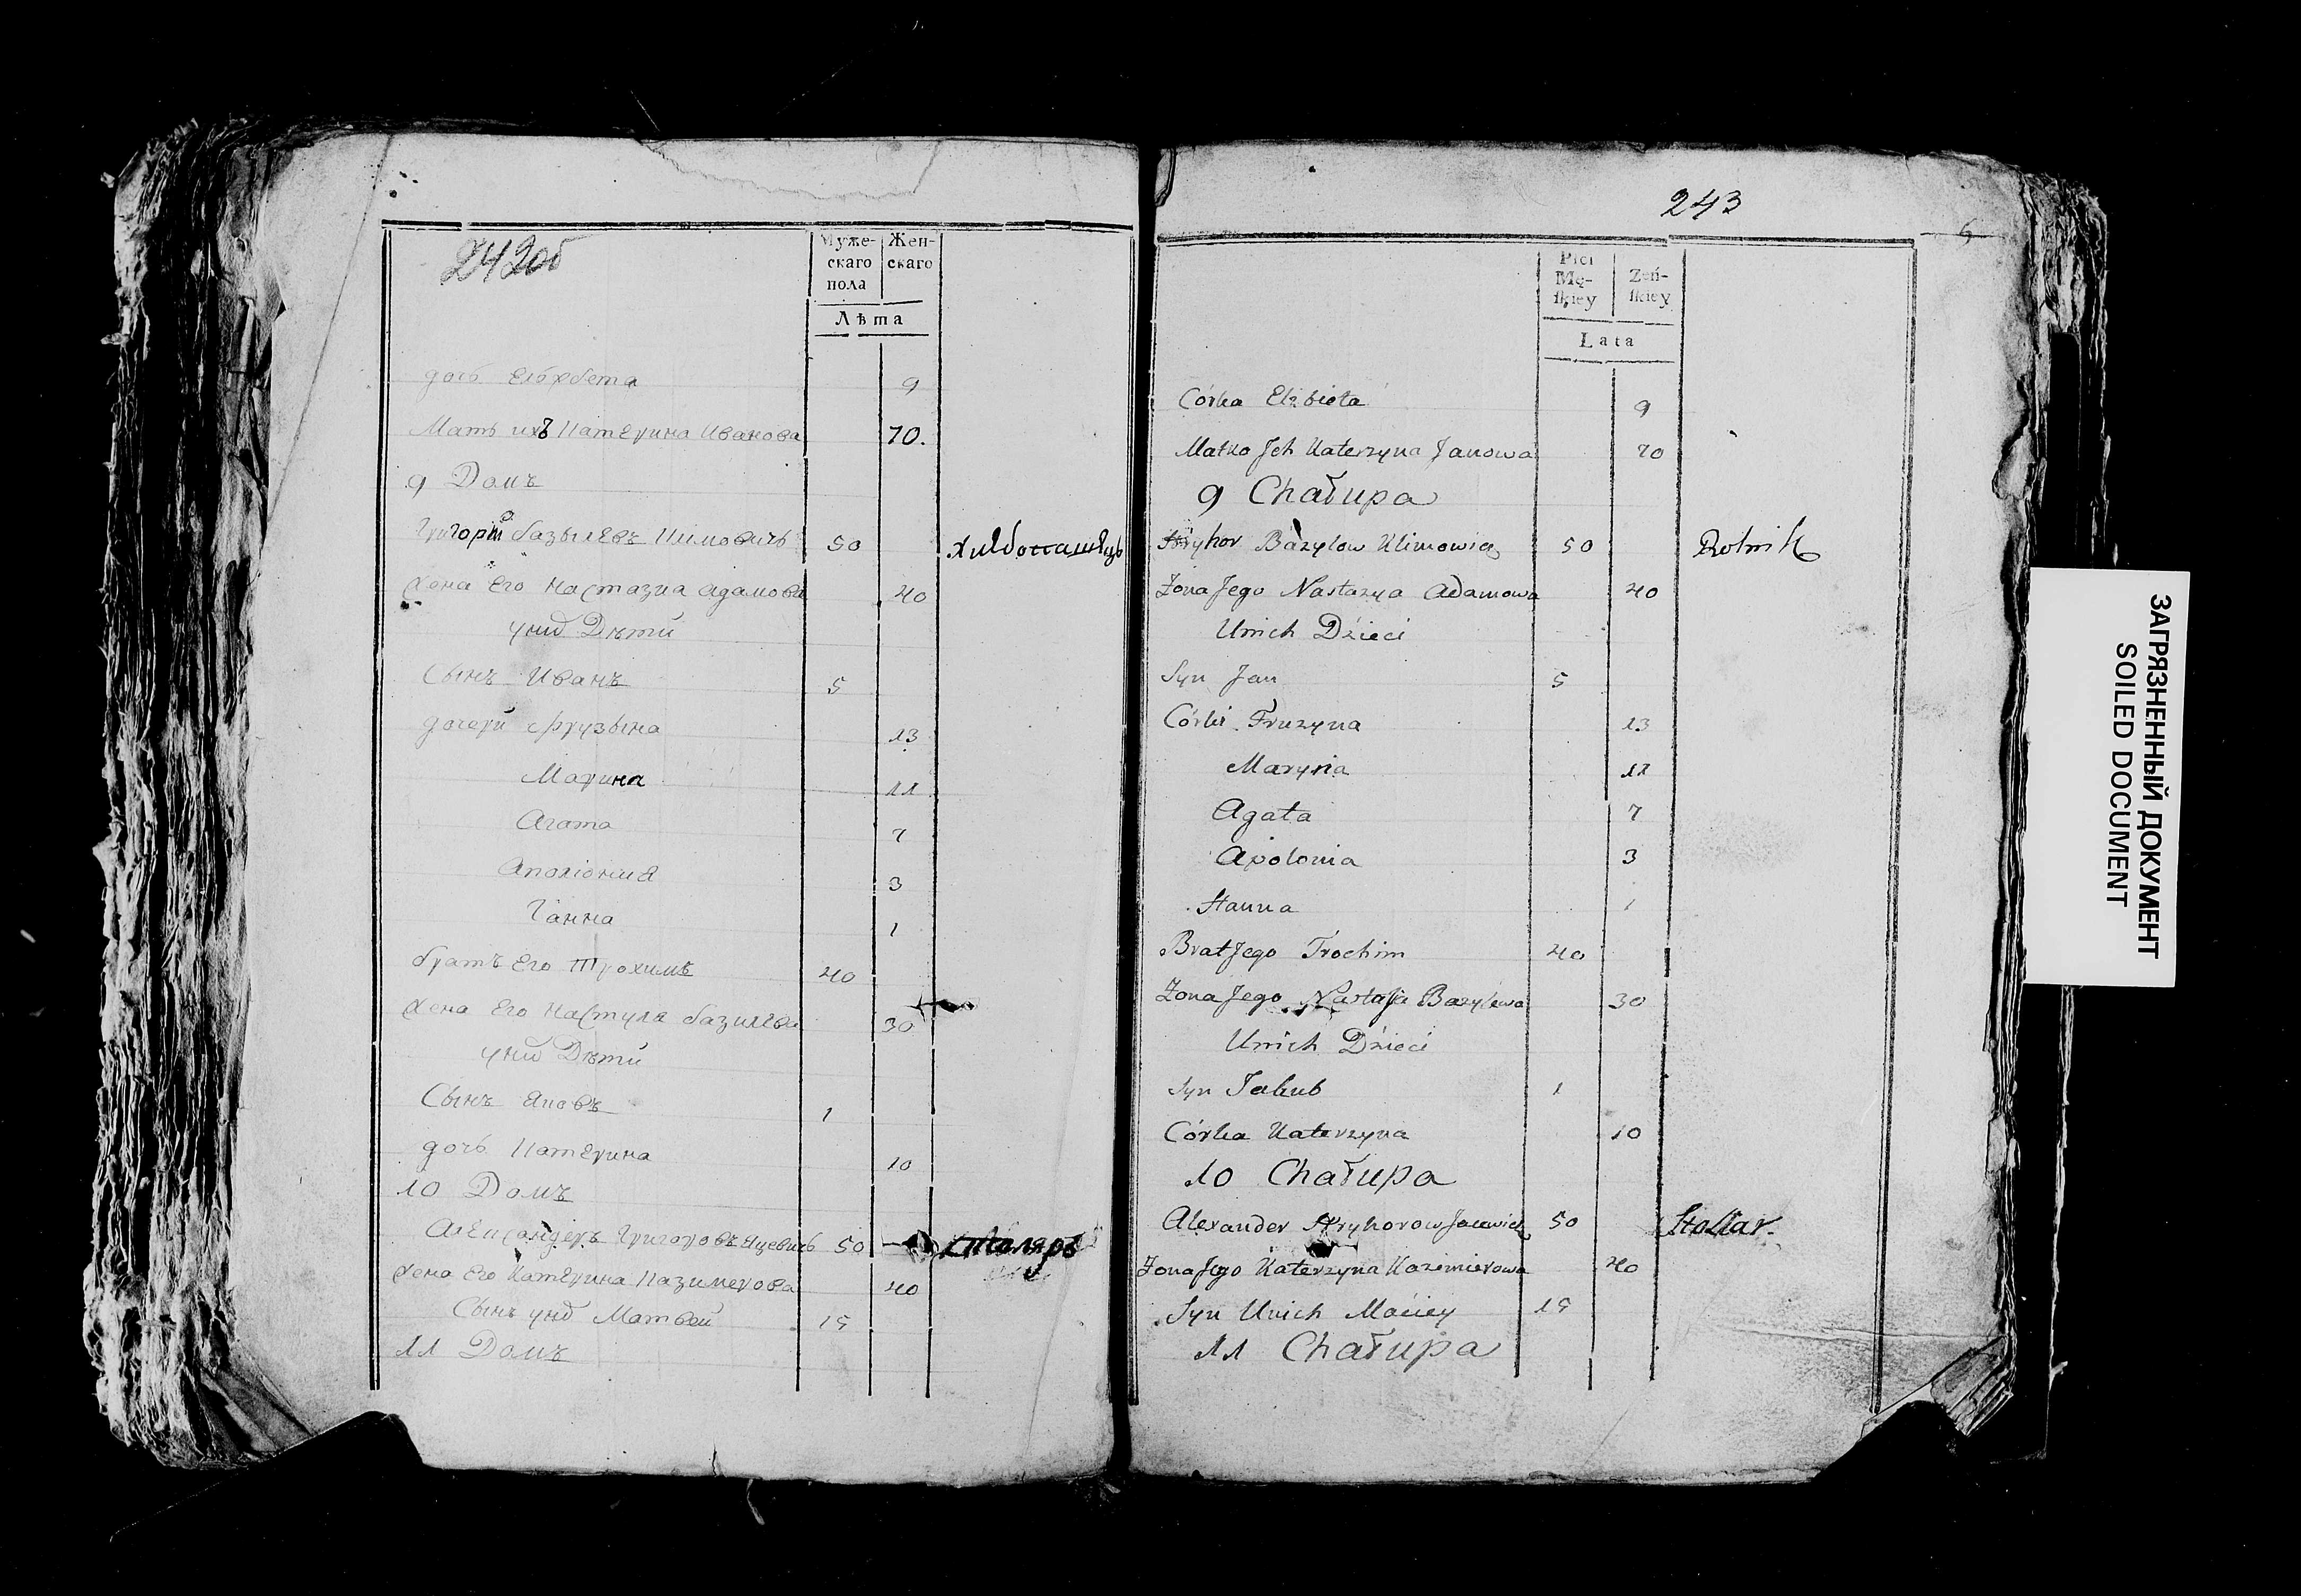 242об
Муже-
скаго
пола
Жен-
скаго
Лѣта
дочь Елбжбета 9
Мать ихъ Катерина Иванова 70.
9 Домъ
Григорій базылевъ Климовичь 50
жена Его Настазиа адамова 40
унид Дѣти
Сынъ Иванъ 5
дочери Фрузына 13
Марина 11
Агата 7
Аполіониа 3
Ганна 1
братъ Его Трохимъ 40
жена Его Настула базилева 30
унид Дѣти
Сынъ Яковъ 1
дочь Катерина 10
10 Домъ
Алепсандеръ Григоровъ Яцевичь 50 Столяръ
жена Его Катерина Казимерова 40
Сынъ унид Матвей 15
11 Домъ
243
6
Płci
Mę-
skiey
Zeń-
skiey
Lata
Córka Elzbieta 9
Matka Jch Katerzyna Janowa 70
9 Chałupa
Hryhor Bazylow Klimowicz 50 Rolnik
Zona Jego Nastazya Adamowa 40
Unich Dzieci
Syn Jan 5
Córki Fruzyna 13
Maryna 11
Agata 7
Apolonia 3
Hanna 1
Brat Jego Trochim 40
Zona Jego Nastazja Bazylowa 30
Unich Dzieci
Syn Jakub 1
Córka Katerzyna 10
10 Chałupa
Alexander Hryhorow Jacewicz 50 Stollar.
Zona Jego Katerzyna Kazimierowa 40
Syn Unich Maciey 15
11 Chałupa
ЗАГРЯЗНЕННЫЙ ДОКУМЕНТ
SOILED DOCUMENT